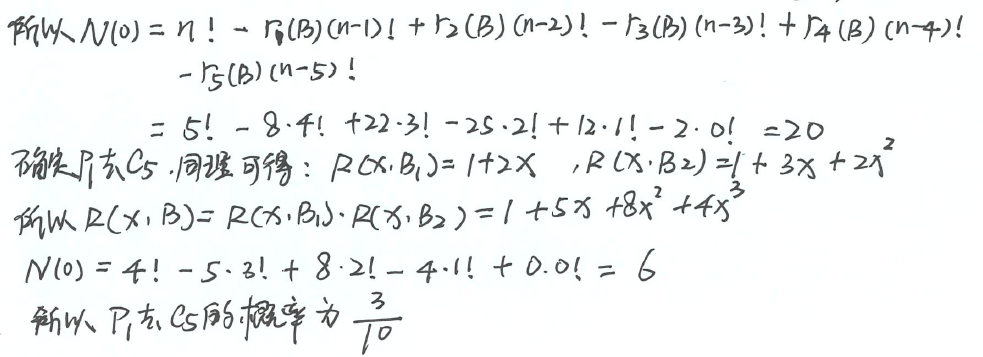 所以 N(0) = n! - r₁(B)(n-1)! + r₂(B)(n-2)! - r₃(B)(n-3)! + r₄(B)(n-4)!
- r₅(B)(n-5)!
= 5! - 8·4! + 22·3! - 25·2! + 12·1! - 2·0! = 20
确定P₁去C5,同理可得: R(x,B₁)=1+2x ,R(x,B2)=1+3x+2x²
所以 R(x,B)= R(x,B₁)·R(x,B₂)=1+5x+8x²+4x³
N(0) = 4! - 5·3! + 8·2! - 4·1! + 0·0! = 6
所以 P₁去C5的概率为 3/10